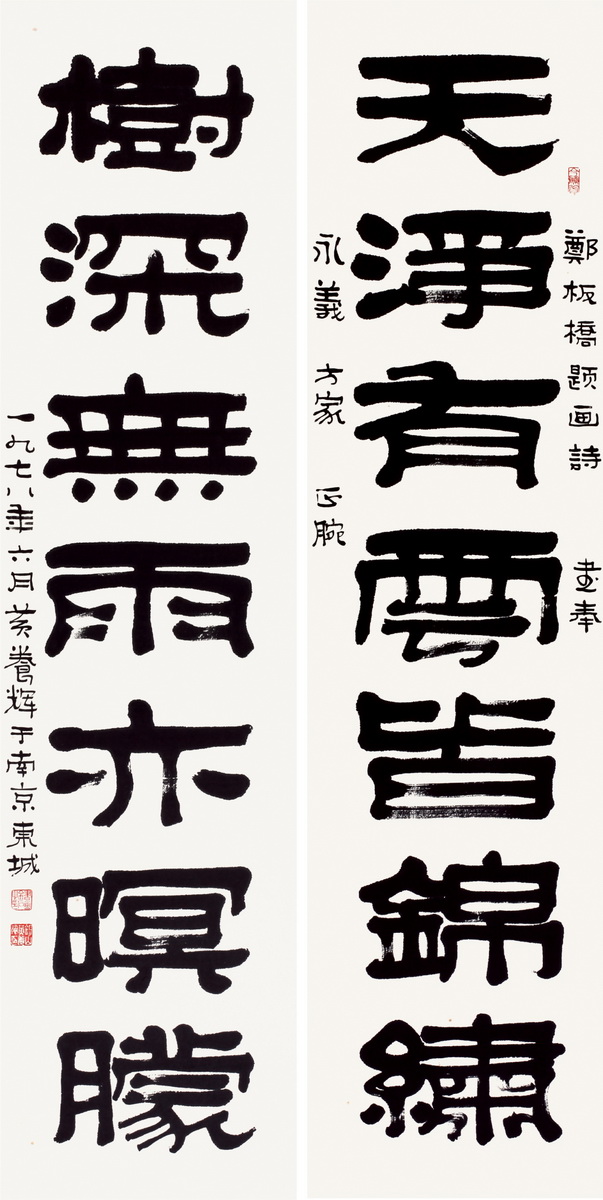 鄭板橋题画詩 书奉
天淨有雲皆錦繡
永義 方家 正腕
樹深無雨亦暝朦
一九七八年六月黄養辉于南京東城